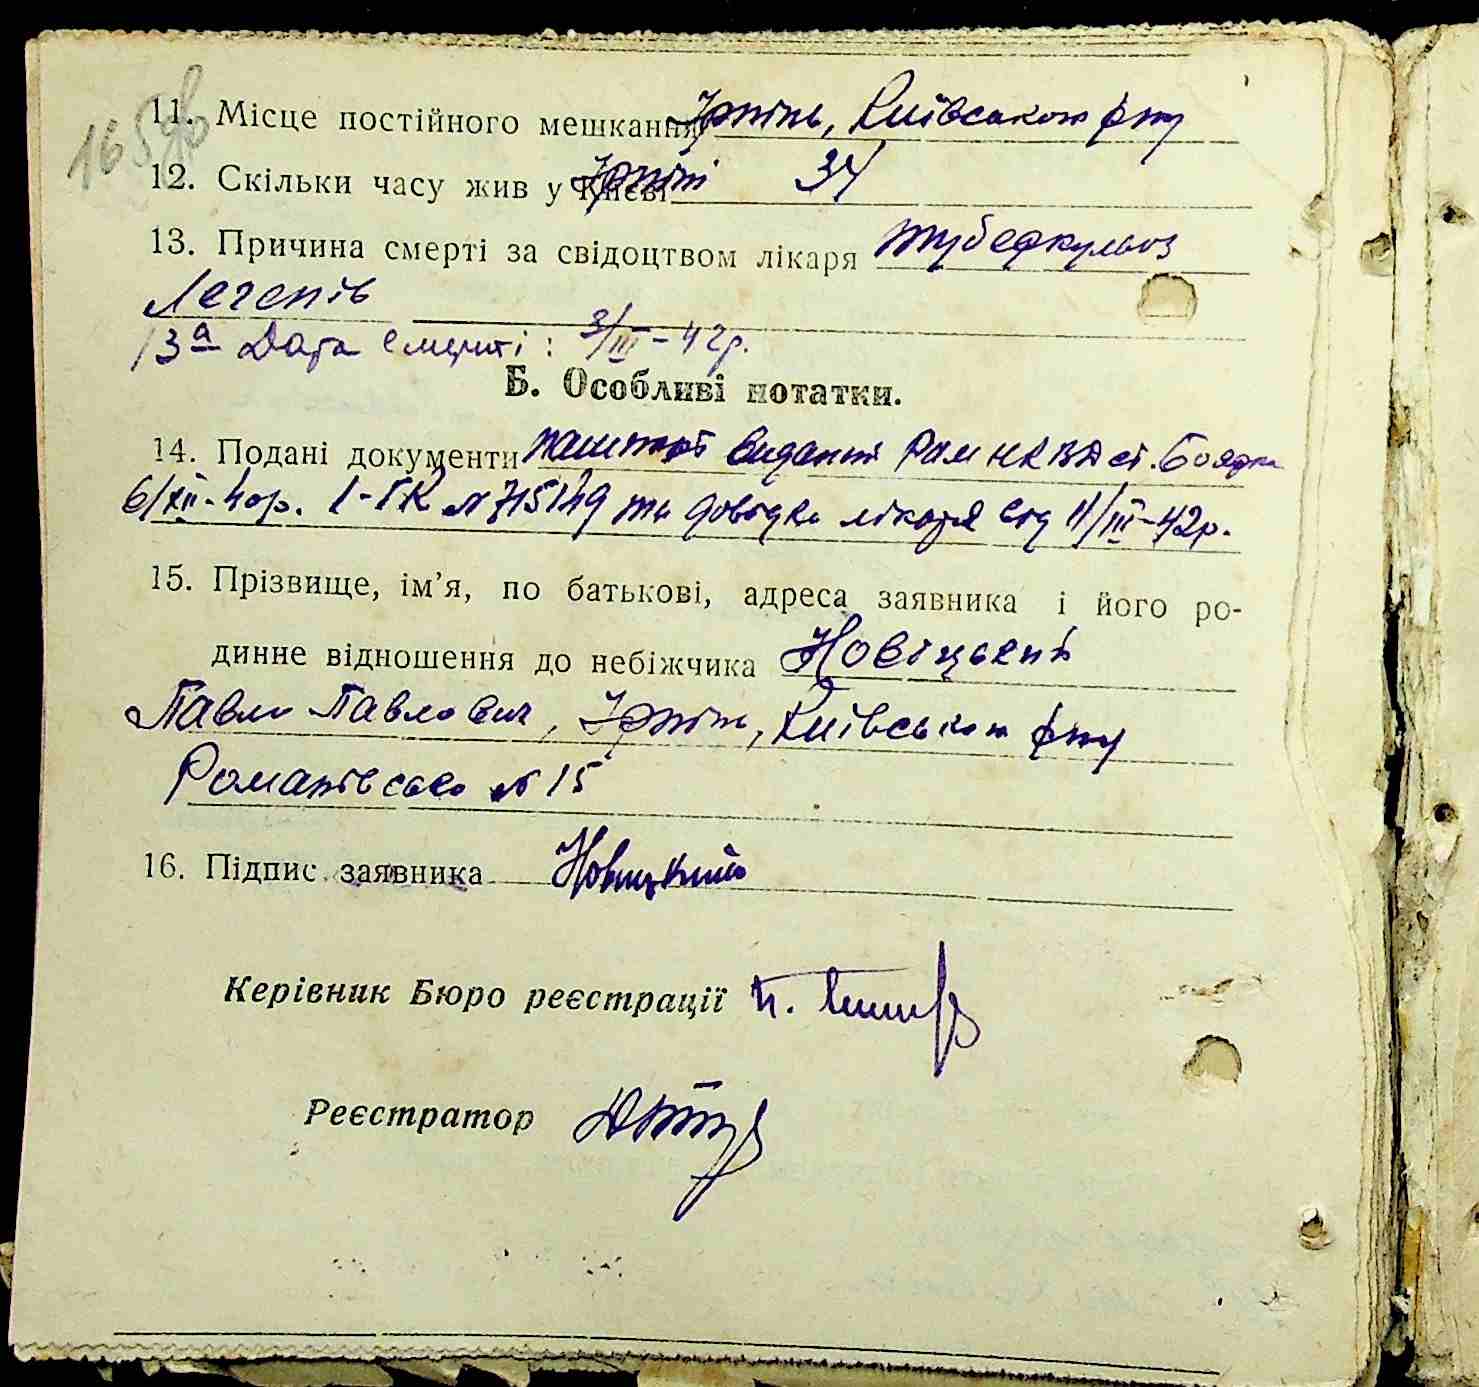 165 зв
11. Місце постійного мешкання Ірпінь, Київського р-ну
12. Скільки часу жив у Києві Ірпіні 34
13. Причина смерті за свідоцтвом лікаря туберкульоз
Легенів
13а Дата смерті: 3/III-42р.
Б. Особливі нотатки.
14. Подані документи пашпорт виданий НКВД ст. Боярка
6/XII-40р. I-ГК № 715149 та довідка лікаря від 11/III-42р.
15. Прізвище, ім'я, по батькові, адреса заявника і його ро-
динне відношення до небіжчика Новіцький
Павло Павлович, Ірпінь, Київського р-ну
Романівська № 15
16. Підпис заявника Новицький
Керівник Бюро реєстрації
Реєстратор